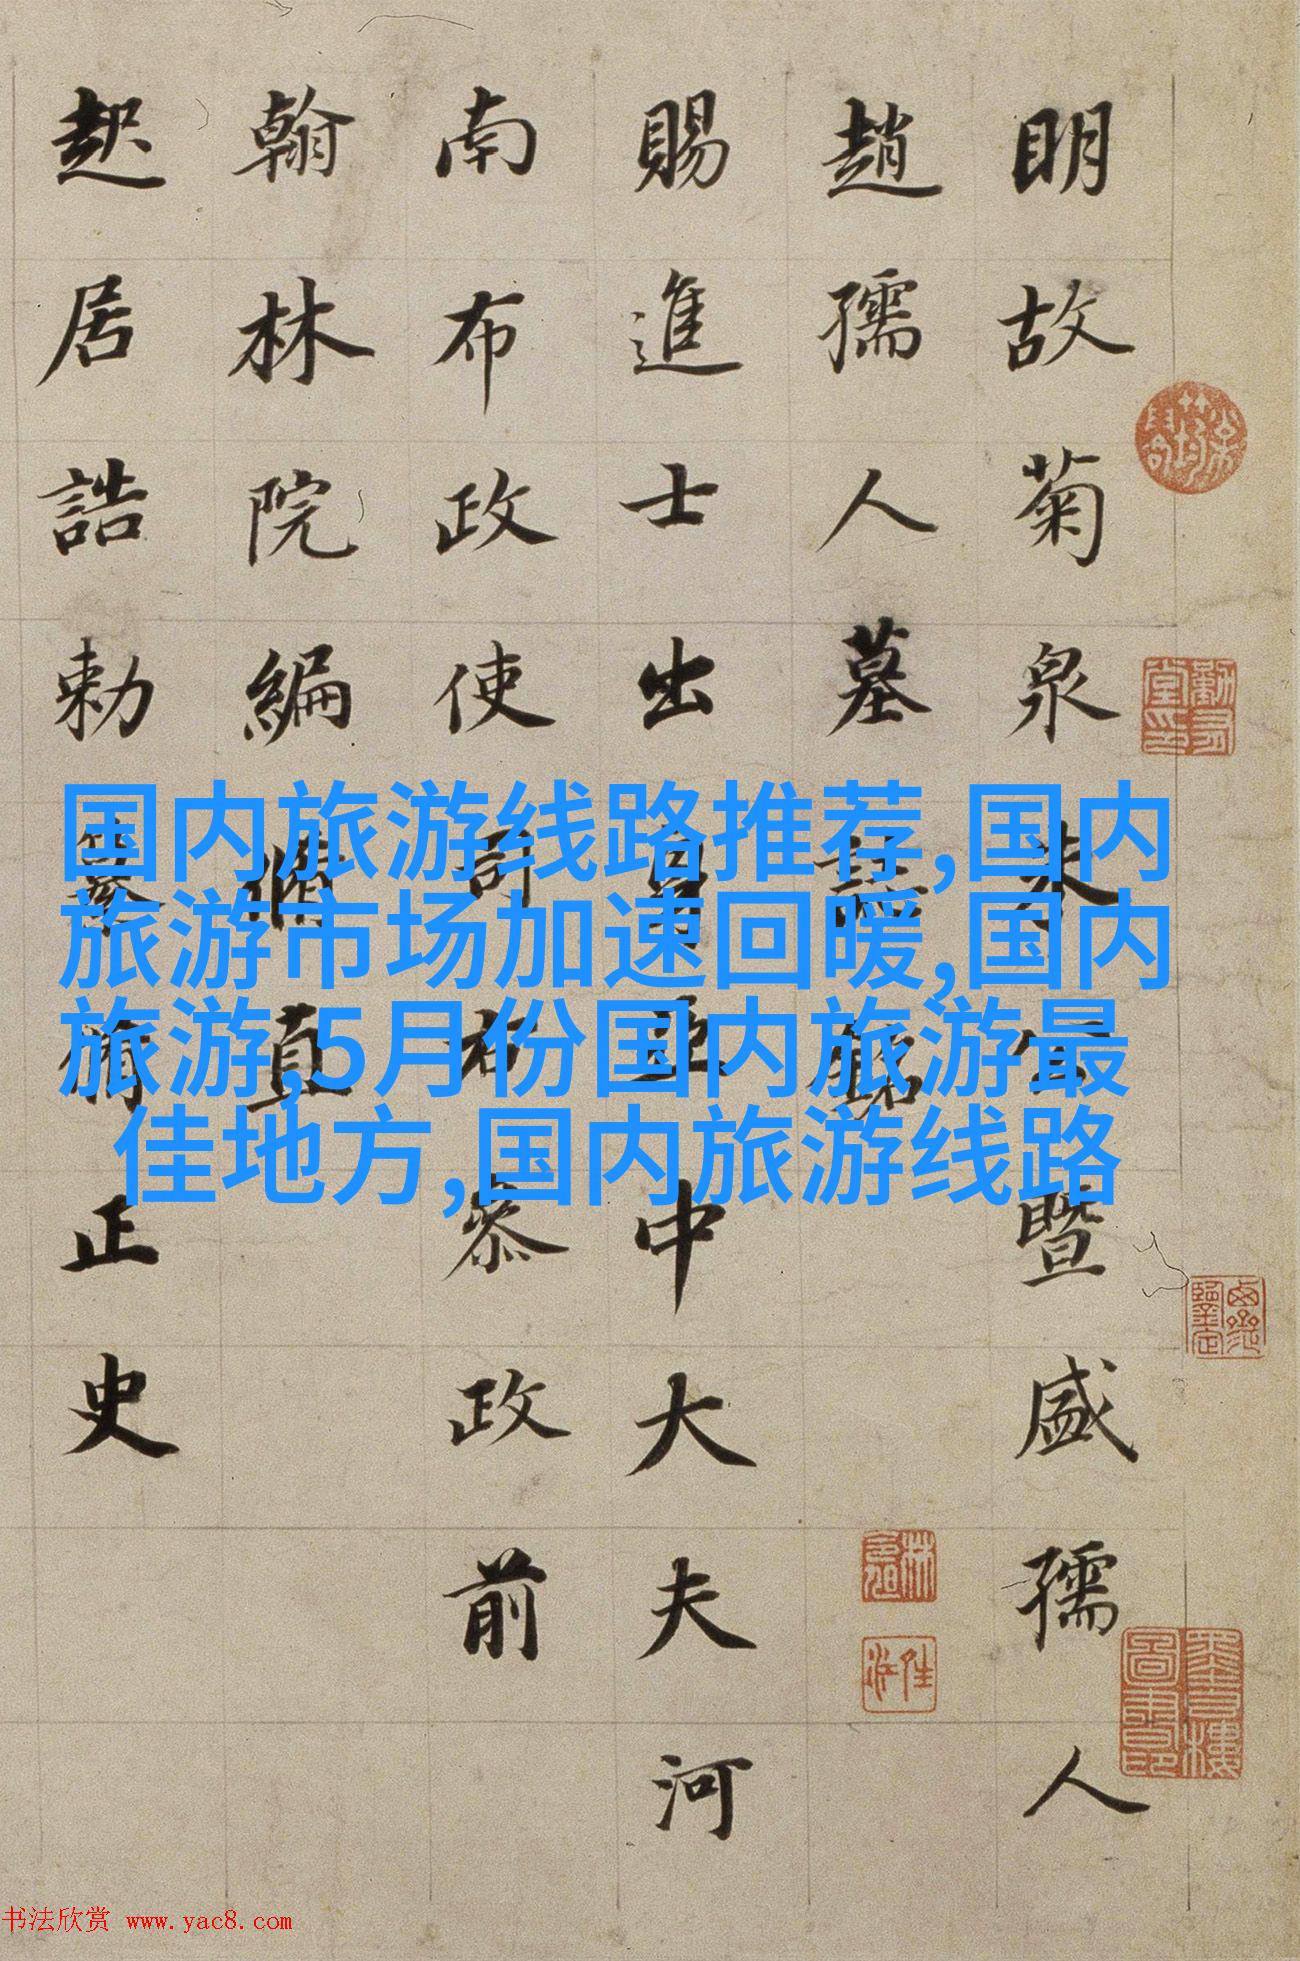 明故菊泉朱公暨盛孺人
趙孺人墓誌銘
賜進士出身亞中大夫河
南布政使司右叅政前
翰林院編脩直
起居誥勅纂脩正史
国内旅游线路推荐,国内
旅游市场加速回暖,国内
旅游,5月份国内旅游最
佳地方,国内旅游线路
书法欣赏 www.yac8.com